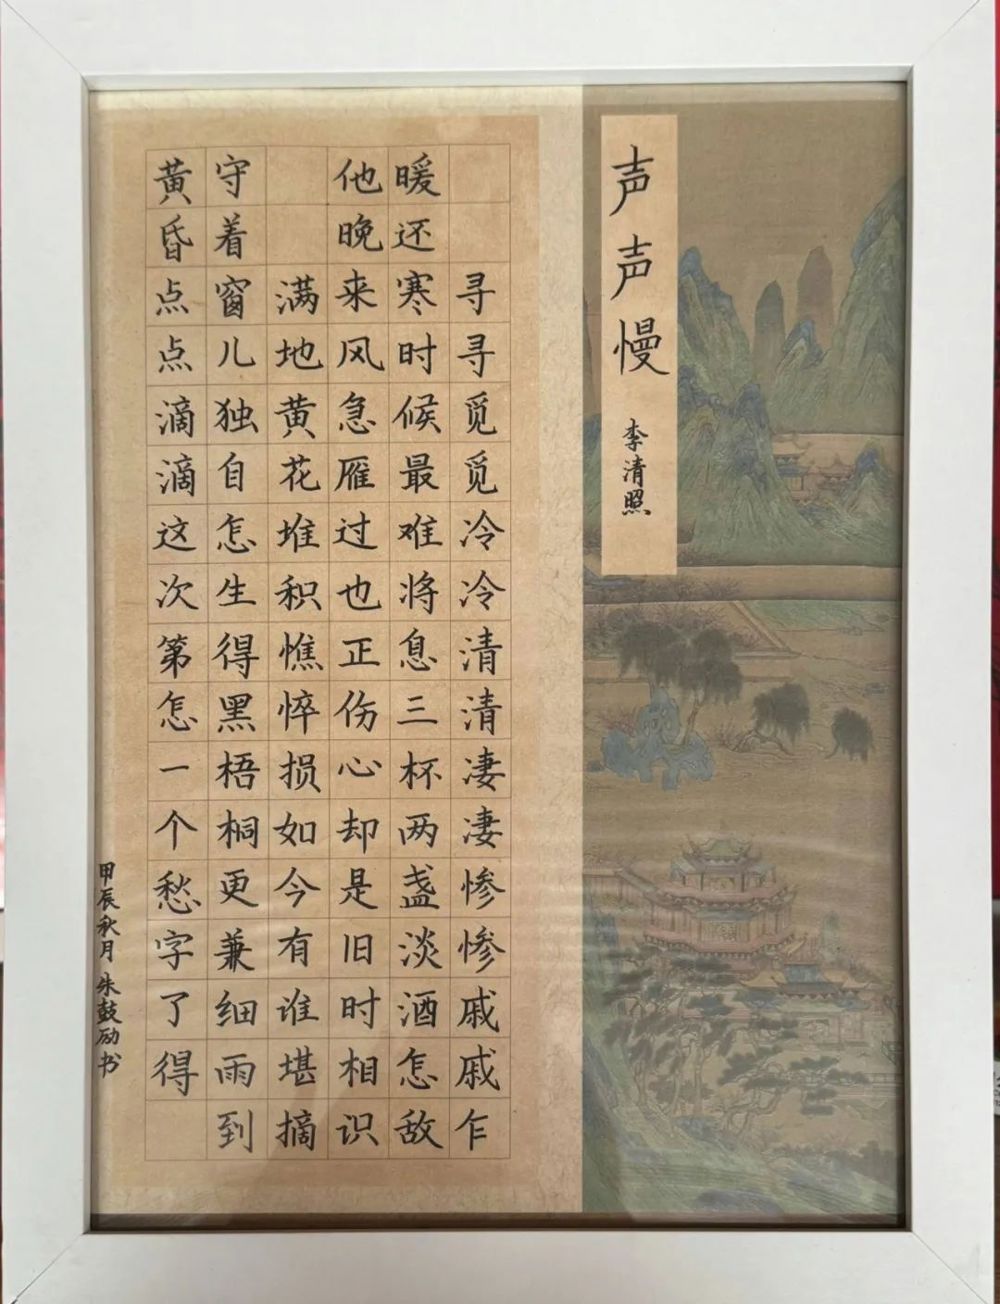 声声慢
李清照
寻寻觅觅冷冷清清凄凄惨惨戚戚乍
暖还寒时候最难将息三杯两盏淡酒怎敌
他晚来风急雁过也正伤心却是旧时相识
满地黄花堆积憔悴损如今有谁堪摘
守着窗儿独自怎生得黑梧桐更兼细雨到
黄昏点点滴滴这次第怎一个愁字了得
甲辰秋月朱鼓励书